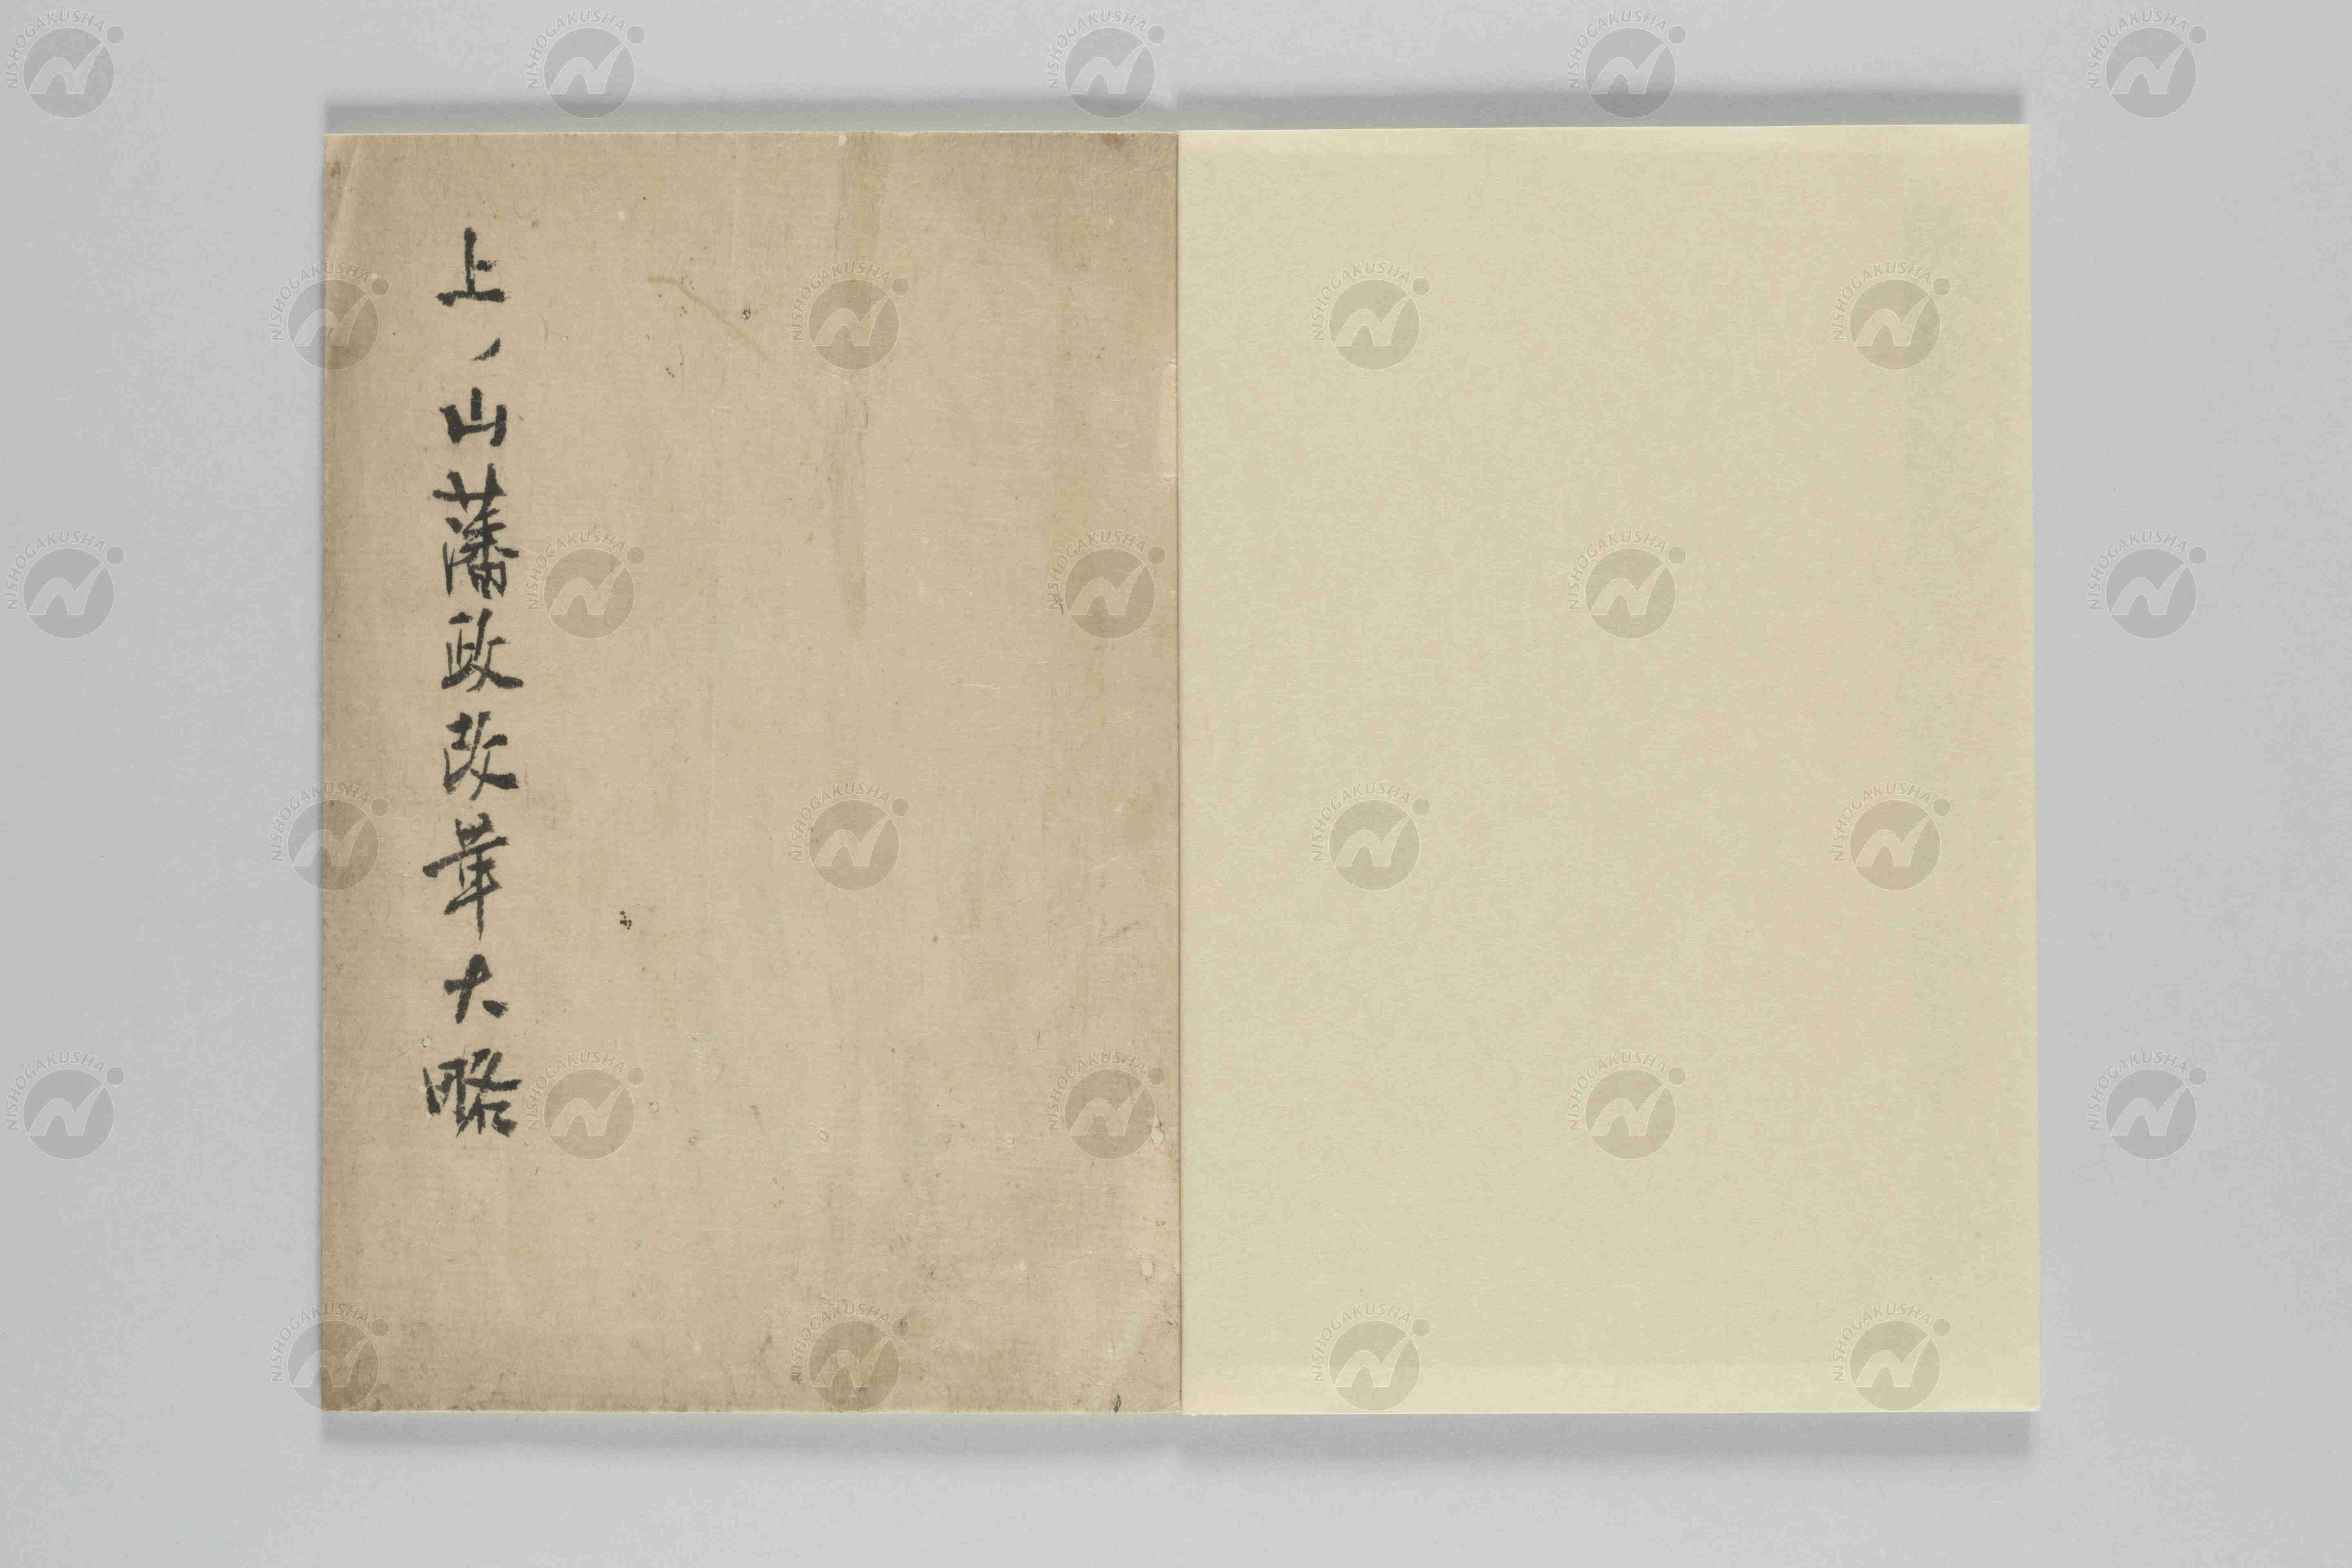 上ノ山藩政改革大略
NISHOGAKUSHA